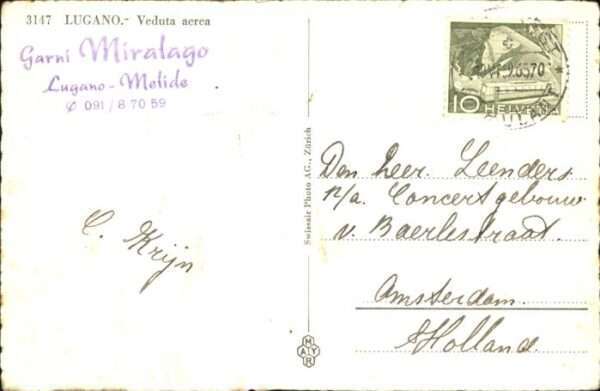 3147 LUGANO.- Veduta aerea
Garni Miralago
Lugano - Melide
✆ 091 / 8 70 59
10 HELVETIA
Swissair Photo AG., Zürich
Den heer. Leenders
p/a. Concertgebouw
v. Baerlestraat.
Amsterdam.
Holland.
C. Krijn
MAYR